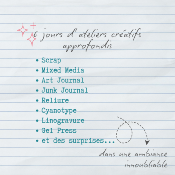 6 jours d'ateliers créatifs
approfondis
• Scrap
• Mixed Media
• Art Journal
• Junk Journal
• Reliure
• Cyanotype
• Linogravure
• Gel Press
• et des surprises...
dans une ambiance
inoubliable